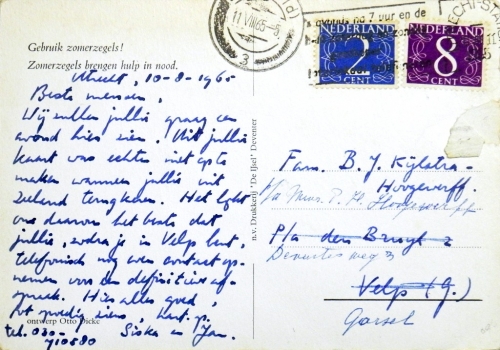 Gebruik zomerzegels!
Zomerzegels brengen hulp in nood.
Utrecht, 10-8-1965
Beste mensen,
Wij willen jullie graag een
avond hier zien. Uit jullie
kaart was echter niet op te
maken wanneer jullie uit
Zeeland terugkeren. Het lijkt
ons daarom het beste dat
jullie, zodra je in Velp bent,
telefonisch nog even contact op-
nemen voor een definitieve af-
spraak. Hier alles goed,
tot spoedig ziens, hart. gr.
tel. 030- Siska en Jan.
710580
ontwerp Otto Dicke
n.v. Drukkerij 'De IJsel' Deventer
11 VIII 65
3
avonds na 7 uur en de
NEDERLAND
2
CENT
NEDERLAND
8
CENT
Fam. B. J. Kijlstra-
Hoogewerff.
p/a Mevr. P. H. Hoogewerff
P/a den Bruyl 2
Deventerweg 3
Velp (G.)
Gorssel